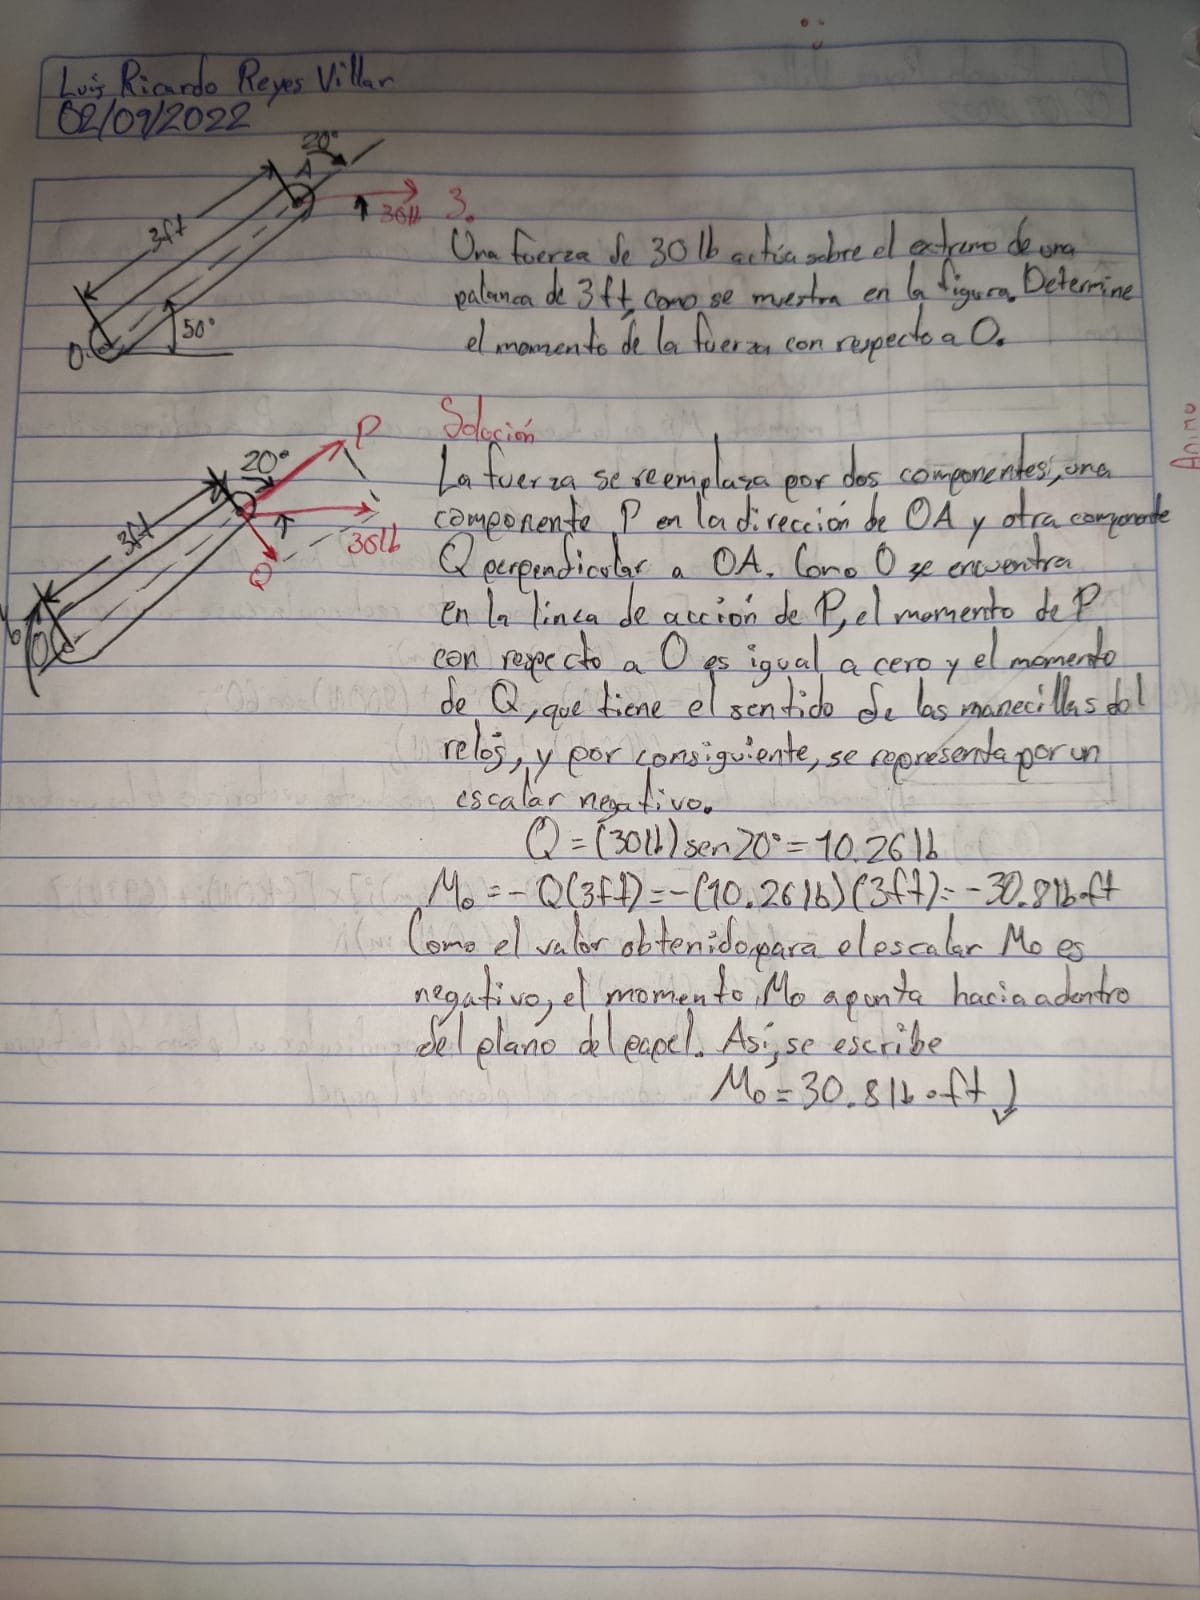 Luis Ricardo Reyes Villar
02/09/2022
20°
A
3ft
30lb
50°
O
3.
Una fuerza de 30 lb actúa sobre el extremo de una
palanca de 3 ft, como se muestra en la figura. Determine
el momento de la fuerza con respecto a O.
Solución
P
20°
3ft
30lb
Q
La fuerza se reemplaza por dos componentes, una
componente P en la dirección de OA y otra componente
Q perpendicular a OA. Como O se encuentra
en la línea de acción de P, el momento de P
con respecto a O es igual a cero y el momento
de Q, que tiene el sentido de las manecillas del
reloj, y por consiguiente, se representa por un
escalar negativo.
Q = (30lb) sen 20° = 10.26 lb
Mo = - Q(3ft) = -(10.26 lb)(3ft) = -30.8 lb·ft
Como el valor obtenido para el escalar Mo es
negativo, el momento Mo apunta hacia adentro
del plano del papel. Así, se escribe
Mo = 30.8 lb·ft ↓